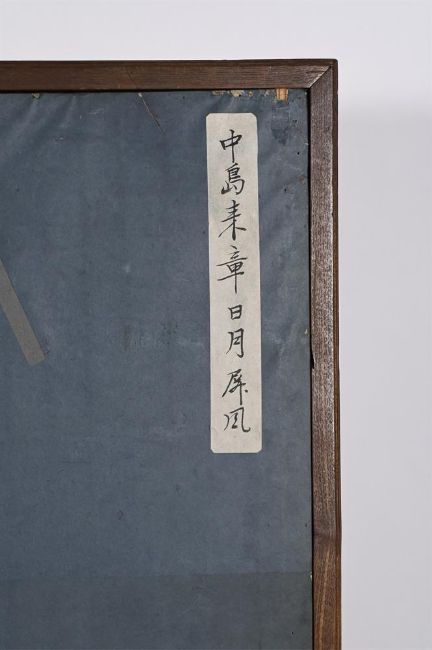 中島来章日月屏風